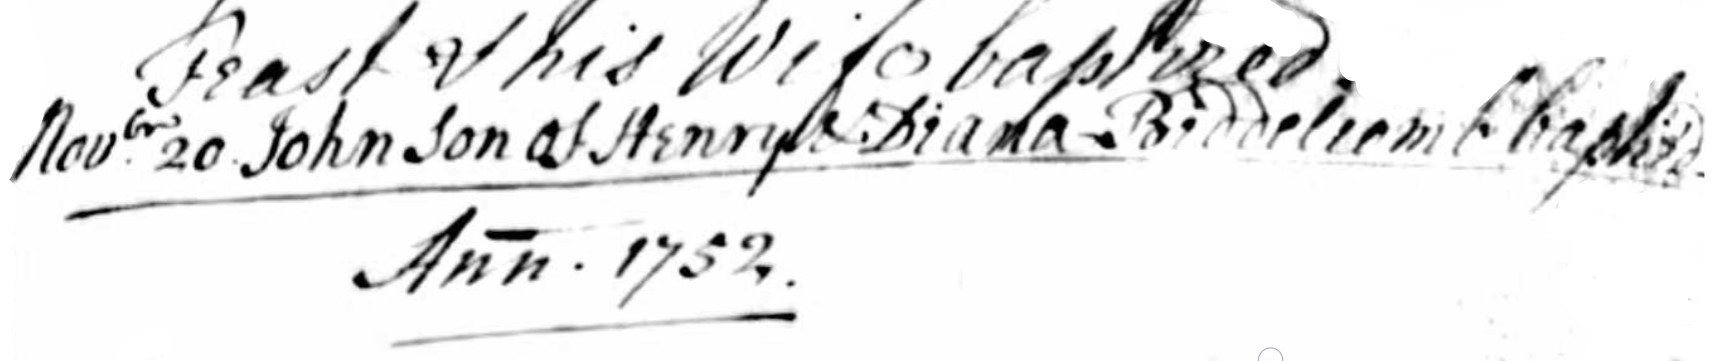 Feast & his Wife baptized.
Nov.br 20. John Son of Henry & Diana Biddelcomb baptizd.
Ann. 1752.